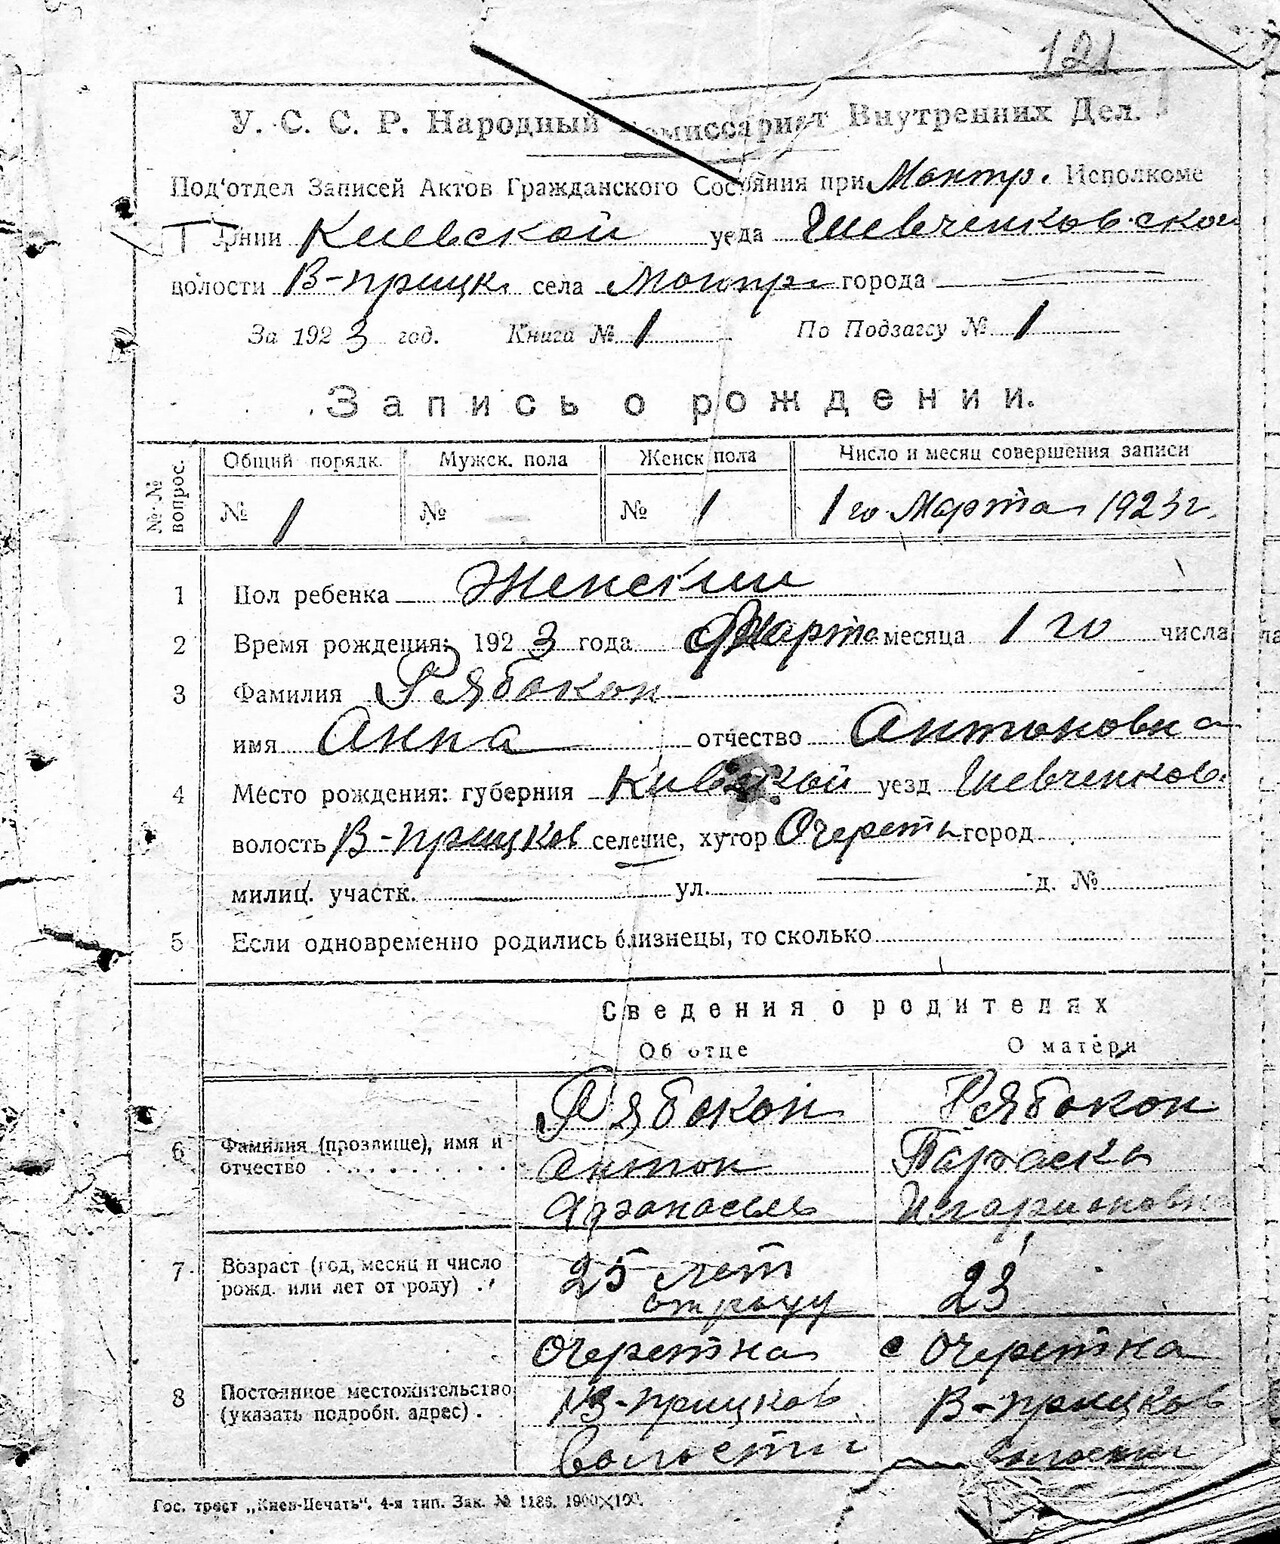 121
У. С. С. Р. Народный Комиссариат Внутренних Дел.
Под'отдел Записей Актов Гражданского Состояния при Монтр. Исполкоме
рнии Киевской уезда Шевченковской
волости В-прицк. села Монтр города
За 1923 год. Книга № 1 По Подзагсу № 1
Запись о рождении.
№№ вопрос. Общий порядк. Мужск. пола Женск пола Число и месяц совершения записи
№ 1 № — № 1 1 го Марта 1923 г.
1 Пол ребенка Женский
2 Время рождения: 1923 года Марта месяца 1 го числа
3 Фамилия Рябокон
имя Анна отчество Антоновна
4 Место рождения: губерния Киевской уезд Шевченков.
волость В-прицков селение, хутор Очеретн город
милиц. участк. ул. д. №
5 Если одновременно родились близнецы, то сколько
Сведения о родителях
Об отце О матери
6 Фамилия (прозвище), имя и отчество Рябокон Рябокон
Антон Параска
Афанасьев Иларионовна
7 Возраст (год, месяц и число рожд. или лет от роду) 25 лет от роду 23
8 Постоянное местожительство (указать подробн. адрес) Очеретна с Очеретна
В-прицков В-прицков
волости волости
Гос. трест „Киев-Печать". 4-я тип. Зак. № 1186. 1900×100.